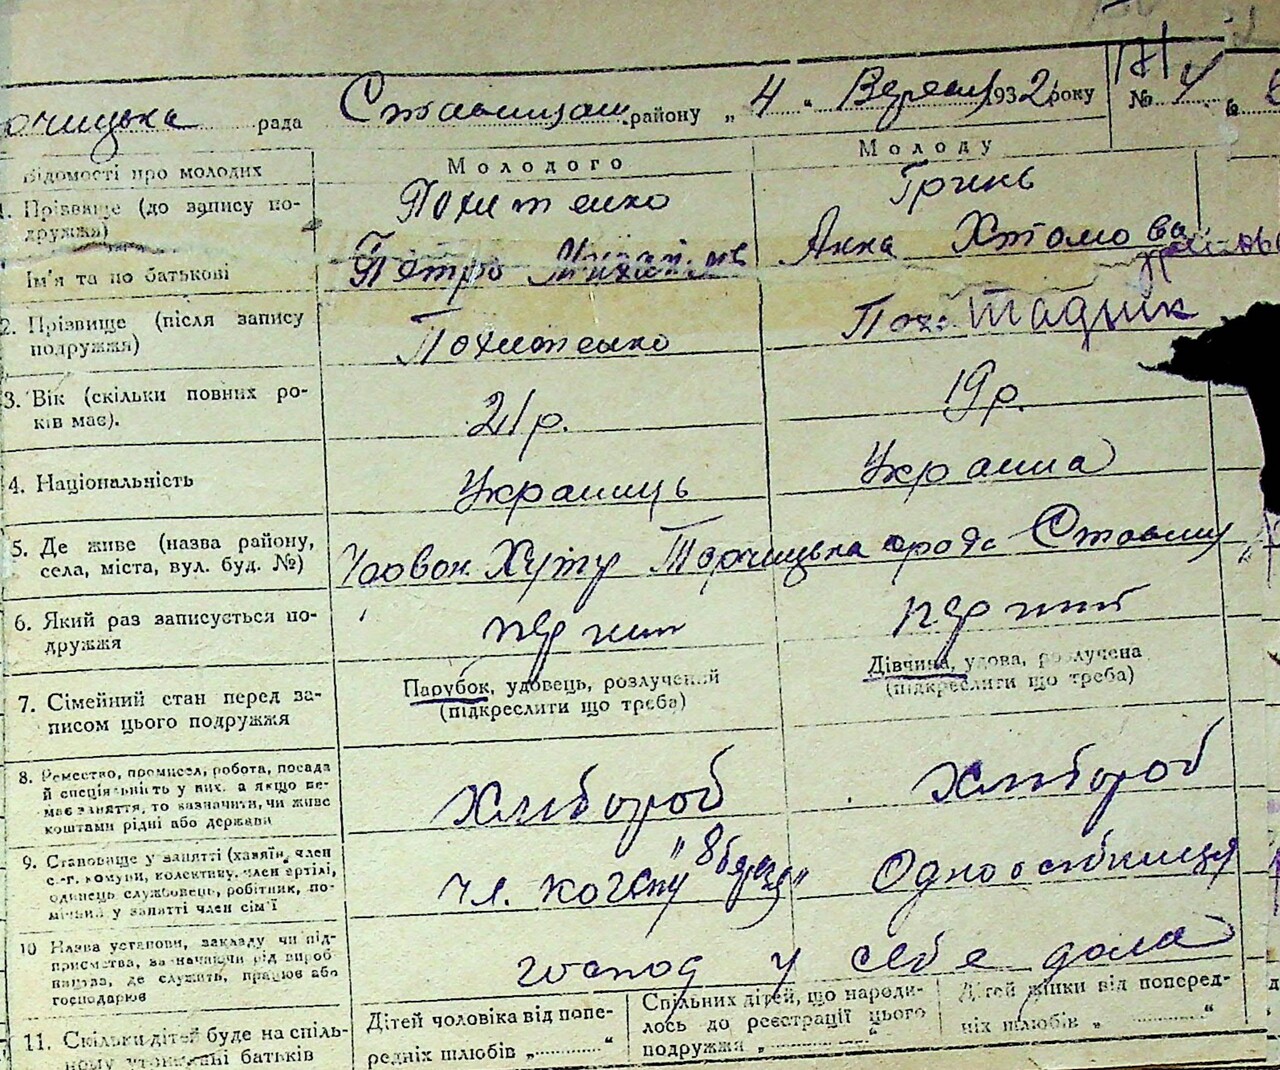 рада Ставищан. району „ 4 “ Вересня 1932 року № 4
Відомості про молодих
Молодого
Молоду
1. Прізвище (до запису по-
дружжя)
Похитенко
Гринь
Ім'я та по батькові
Петро
Анна Хтомова
2. Прізвище (після запису
подружжя)
Похитенко
Пох.
3. Вік (скільки повних ро-
ків має).
21 р.
19 р.
4. Національність
Украинць
Украинa
5. Де живе (назва району,
села, міста, вул. буд. №)
Торчицька
6. Який раз записується по-
дружжя
7. Сімейний стан перед за-
писом цього подружжя
Парубок, удовець, розлучений
(підкреслити що треба)
Дівчина, удова, розлучена
(підкреслити що треба)
8. Ремество, промисел, робота, посада
й спеціяльність у них, а якщо не-
має заняття, то зазначити, чи живе
коштами рідні або держави
Хлибороб
Хлибороб
9. Становище у занятті (хазяїн, член
с.-г. комуни, колективу, член артілі,
одинець службовець, робітник, по-
мічний у занятті член сім'ї
чл.
Одноосибниця
10 Назва установи, закладу чи під-
приємства, зазначаючи рід вироб-
ництва, де служить, працює або
господарює
господ у себе дома
11. Скільки дітей буде на спіль-
ному утриманні батьків
Дітей чоловіка від попе-
редніх шлюбів „ “
Спільних дітей, що народи-
лось до реєстрації цього
подружжя „ “
Дітей жінки від поперед-
ніх шлюбів „ “